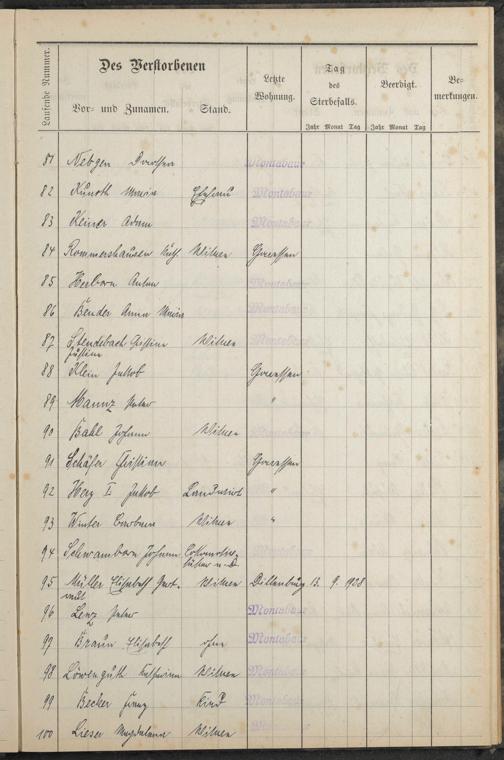 Laufende Nummer.
Des Verstorbenen
Vor- und Zunamen.
Stand.
Letzte
Wohnung.
Tag
des
Sterbefalls.
Jahr Monat Tag
Beerdigt.
Jahr Monat Tag
Be-
merkungen.
81 Nebgen Montabaur
82 Kunoth Maria Ehefrau Montabaur
83 Keiner Adam Montabaur
84 Rommershausen Kath. Witwe Goressen
85 Herborn Anton Montabaur
86 Bender Anna Maria Montabaur
87 Stendebach Christine Witwe Montabaur
Justine
88 Klein Jakob Goressen
89 Mannz Peter "
90 Bahl Johann Witwer Montabaur
91 Schäfer Christian Goressen
92 Herz I Jakob Landwirt "
93 Winter Barbara Witwe "
94 Schwamborn Johann Montabaur
95 Müller Elisabeth Witwe Dillenburg 13. 9. 908
96 Lenz Peter Montabaur
97 Braun Elisabeth ohne Montabaur
98 Löwenguth Katharina Witwe Montabaur
99 Becker Franz Kind Montabaur
100 Lieser Magdalena Witwe Montabaur